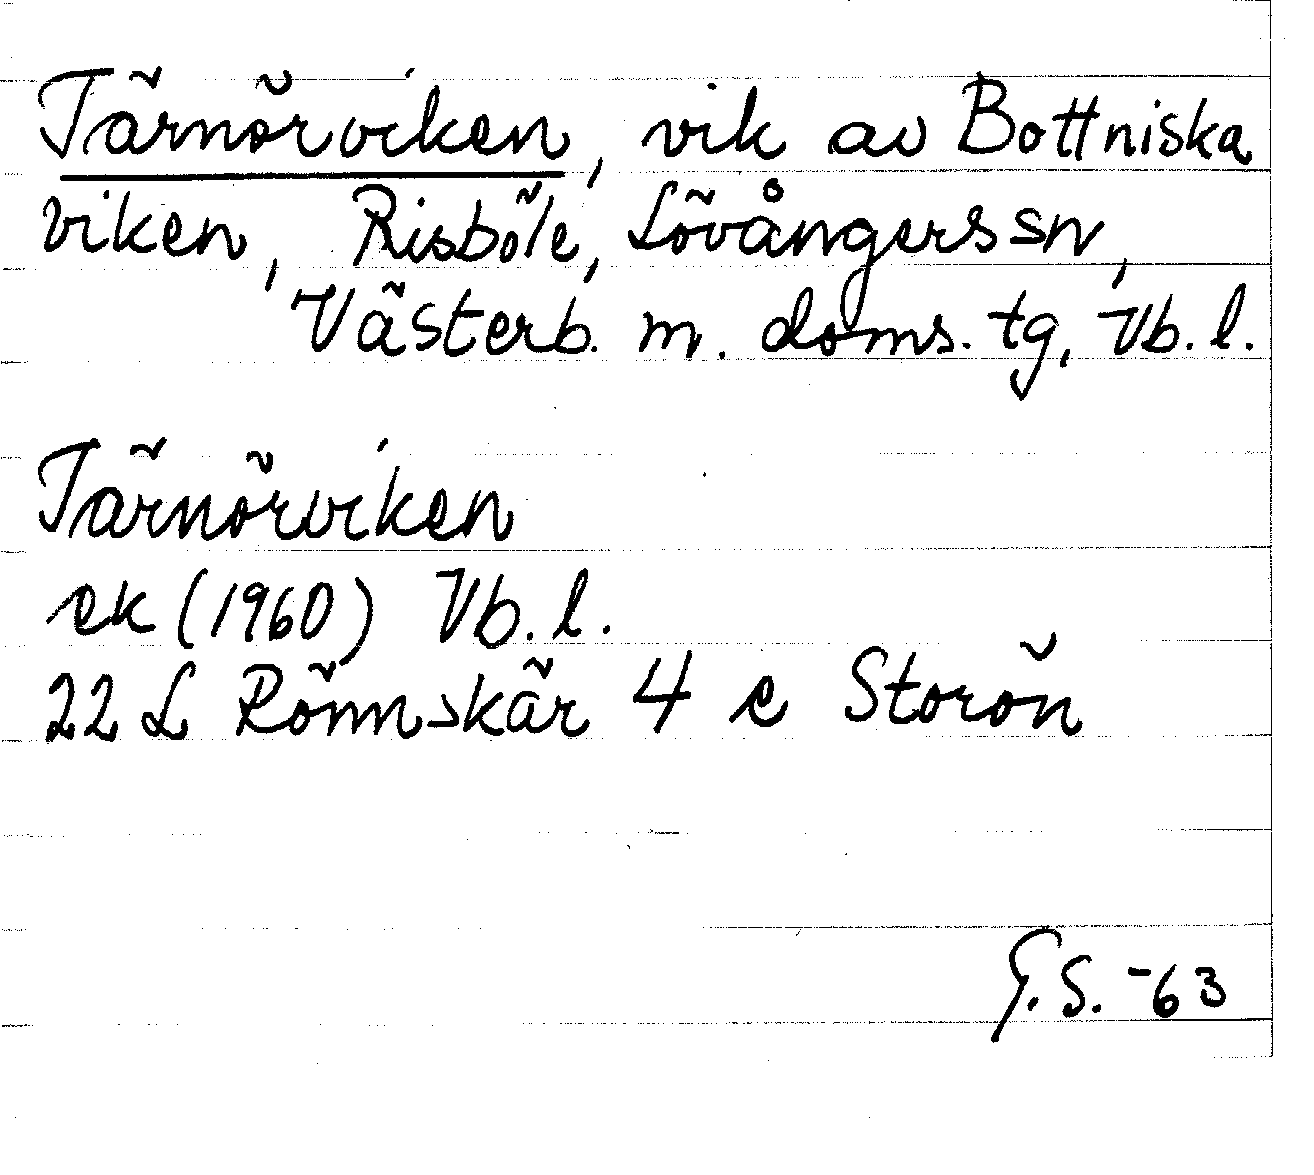 Tärnörviken, vik av Bottniska
viken, Risböle, Lövångers sn,
Västerb. m. doms. tg, Vb. l.
Tärnörviken
ek (1960) Vb. l.
22 L Rönnskär 4 c Storön
G.S. -63